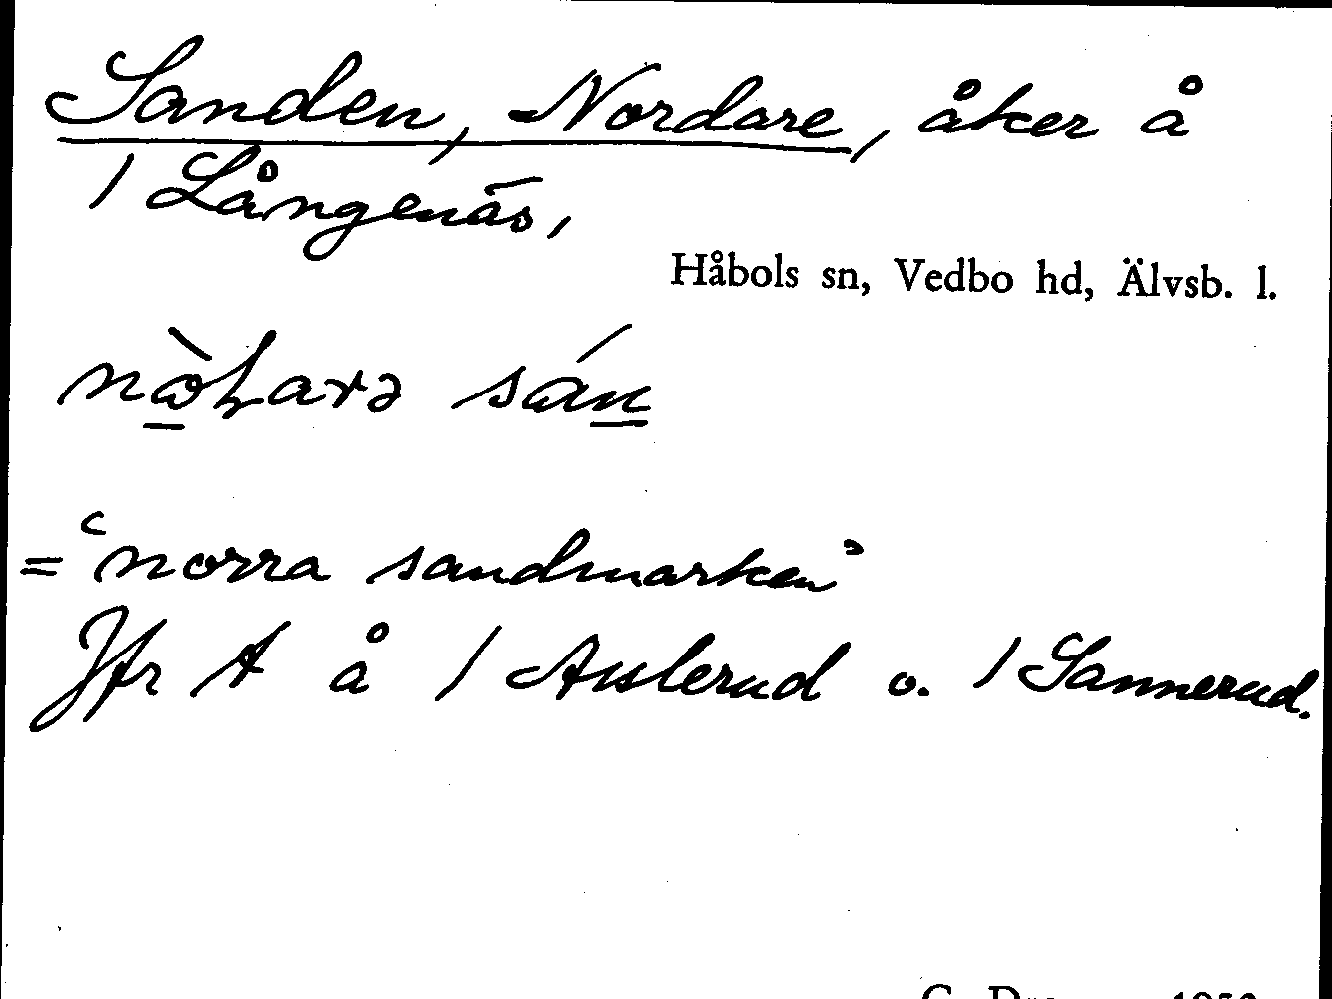 Sanden, Nordare, åker å
/ Långenäs,
Håbols sn, Vedbo hd, Älvsb. l.
sán
= "norra sandmarken"
Jfr å / Auslerud o. / Sannerud.